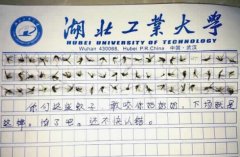 湖北工业大学
HUBEI UNIVERSITY OF TECHNOLOGY
Wuhan 430068, Hubei P.R.China 中国·武汉
你们这些蚊子，敢咬你奶奶的，下场就是
这样，怕了吧。还不快认错。